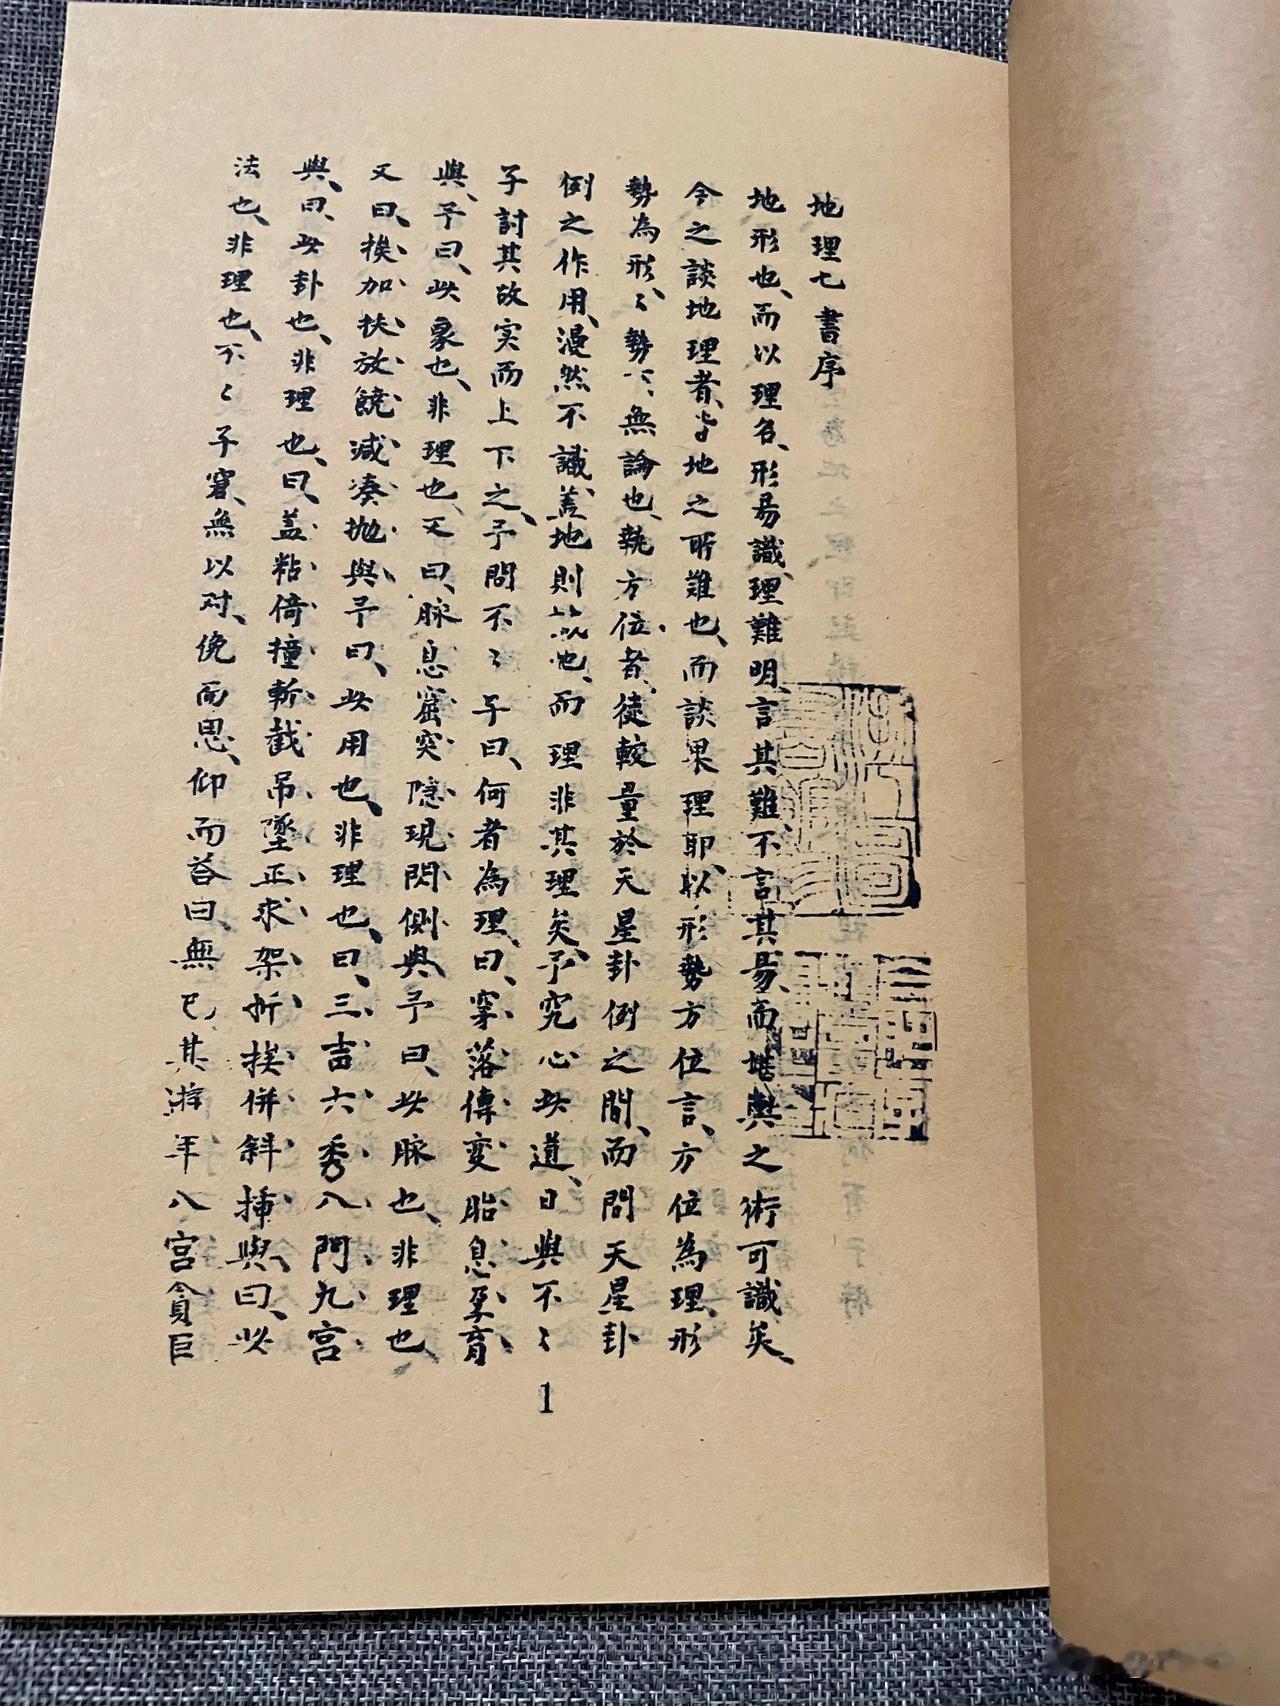 地理七書序
地形也、而以理名、形易識、理難明、言其難、不言其易、而堪輿之術可識矣、
今之談地理者、皆地之所難也、而談果理耶、以形勢方位言、方位為理、形
勢為形、〻勢下、無論也、執方位者、徒較量於天星卦例之間、而問天星卦
例之作用、漫然不識、蓋地則地、而理非其理矣、予究心此道、日與不〻
子討其故实而上下之、予問不〻子曰、何者為理、曰、穿落傳変胎息孕育
與、予曰、此象也、非理也、又曰、脉息窟突隐現閃側與、予曰、此脈也、非理也、
又曰、挨加扶放饒減湊拋與、予曰、此用也、非理也、曰、三吉六秀八門九宮
與、曰、此卦也、非理也、曰、盖粘倚撞斬截吊墜正求架折挨併斜揷與、曰、此
法也、非理也、不〻子窘、無以对、俛而思、仰而荅曰、無已其游年八宮貪巨
1